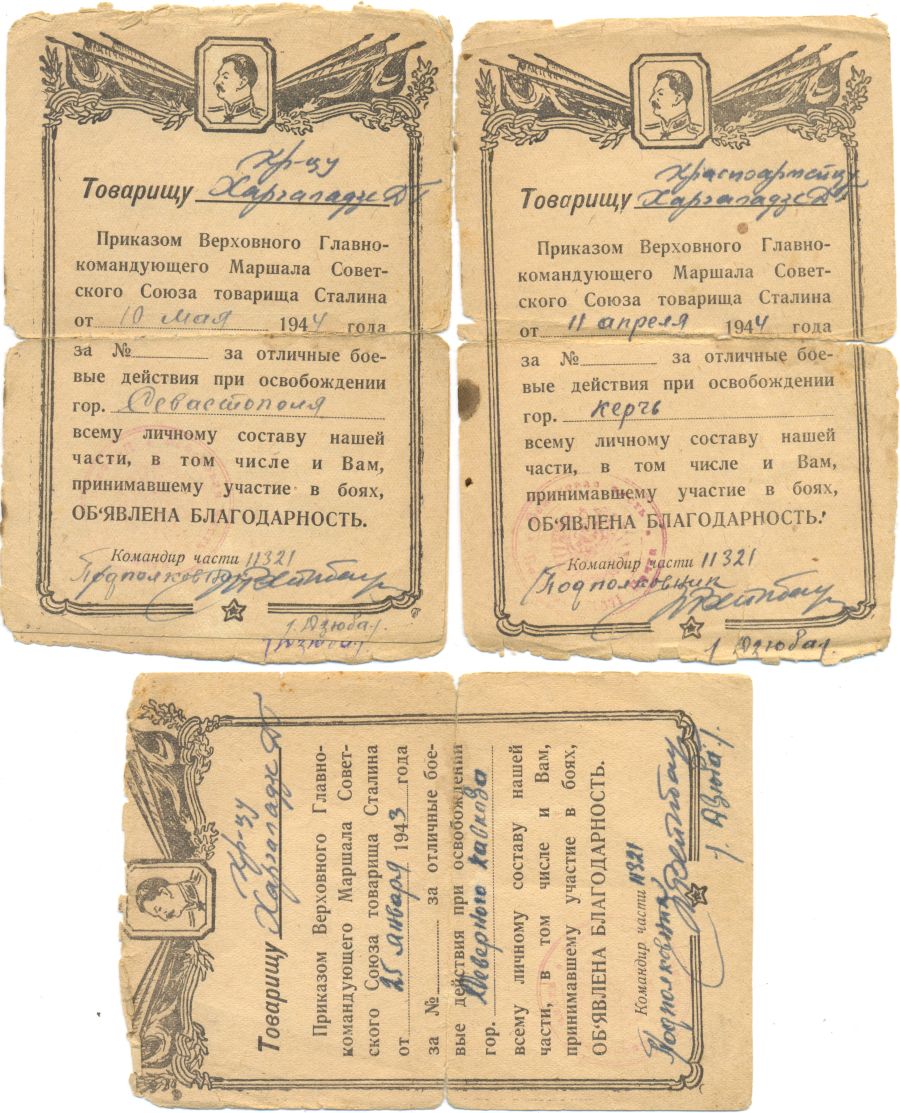 Товарищу кр-цу
Харгаладзе Д Г
Приказом Верховного Главно-
командующего Маршала Совет-
ского Союза товарища Сталина
от 10 мая 1944 года
за № за отличные бое-
вые действия при освобождении
гор. Севастополя
всему личному составу нашей
части, в том числе и Вам,
принимавшему участие в боях,
ОБ‘ЯВЛЕНА БЛАГОДАРНОСТЬ.
Командир части 11321
Подполковник
/ Дзюба /.
/ Дзюба /.
Товарищу Красноармейцу
Харгаладзе Д
Приказом Верховного Главно-
командующего Маршала Совет-
ского Союза товарища Сталина
от 11 апреля 1944 года
за № за отличные бое-
вые действия при освобождении
гор. Керчь
всему личному составу нашей
части, в том числе и Вам,
принимавшему участие в боях,
ОБ‘ЯВЛЕНА БЛАГОДАРНОСТЬ.
Командир части 11321
Подполковник
/ Дзюба /.
Товарищу кр-цу
Харгаладзе Д
Приказом Верховного Главно-
командующего Маршала Совет-
ского Союза товарища Сталина
от 25 января 1943 года
за № за отличные бое-
вые действия при освобождении
гор. Северного Кавказа
всему личному составу нашей
части, в том числе и Вам,
принимавшему участие в боях,
ОБ‘ЯВЛЕНА БЛАГОДАРНОСТЬ.
Командир части 11321
Подполковник
/ Дзюба /.